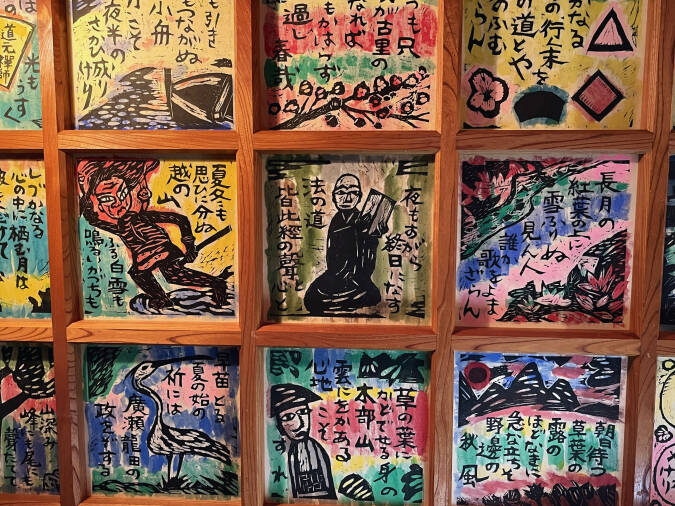 道元禪師
光も
うすく
も引き
もつながぬ
小舟
こそ
夜半の
さかり成り
けり
つも只
が古里の
なれば
もかはらず
過し
春哉
かなる
の行末を
の道とや
のふむ
らん
しづかなる
心の中に栖む月は
夏冬も
思ひに分ぬ
越の山
ふる白雪も
鳴るいかづちも
夜もすがら
終日になす
法の道
皆此經の聲と
心と
長月の
紅葉の上に
雪ふりぬ
見ん人
誰か
歌をよま
ざらん
山深み
峰にも尾にも
聲たてて
早苗とる
夏の始の
祈には
廣瀬龍田の
政をぞする
草の葉に
かどでせる身の
木部山
雲にをかある
心地こそ
すれ
朝日待つ
草葉の
露の
ほどなきに
急な立ちそ
野邊の
秋風